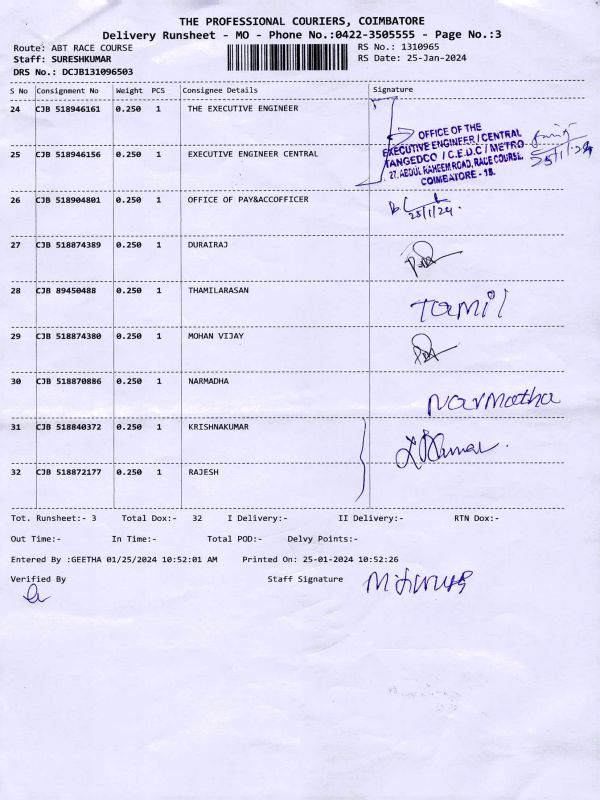 THE PROFESSIONAL COURIERS, COIMBATORE
Delivery Runsheet - MO - Phone No.:0422-3505555 - Page No.:3
Route: ABT RACE COURSE
RS No.: 1310965
Staff: SURESHKUMAR
RS Date: 25-Jan-2024
DRS No.: DCJB131096503
S No Consignment No Weight PCS Consignee Details Signature
24 CJB 518946161 0.250 1 THE EXECUTIVE ENGINEER
OFFICE OF THE
EXECUTIVE ENGINEER / CENTRAL
TANGEDCO / C.E.D.C / METRO
27, ABDUL RAHEEM ROAD, RACE COURSE,
COIMBATORE - 18.
25/1/24
25 CJB 518946156 0.250 1 EXECUTIVE ENGINEER CENTRAL
26 CJB 518904801 0.250 1 OFFICE OF PAY&ACCOFFICER
25/1/24.
27 CJB 518874389 0.250 1 DURAIRAJ
28 CJB 89450488 0.250 1 THAMILARASAN
Tamil
29 CJB 518874380 0.250 1 MOHAN VIJAY
30 CJB 518870886 0.250 1 NARMADHA
Narmatha
31 CJB 518840372 0.250 1 KRISHNAKUMAR
32 CJB 518872177 0.250 1 RAJESH
Tot. Runsheet:- 3 Total Dox:- 32 I Delivery:- II Delivery:- RTN Dox:-
Out Time:- In Time:- Total POD:- Delvy Points:-
Entered By :GEETHA 01/25/2024 10:52:01 AM Printed On: 25-01-2024 10:52:26
Verified By Staff Signature